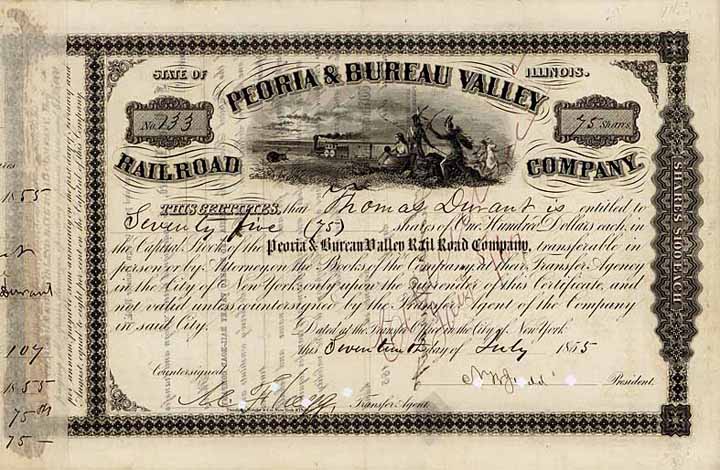 STATE OF ILLINOIS.
PEORIA & BUREAU VALLEY
No. 133
75 Shares
RAILROAD COMPANY.
THIS CERTIFIES, that Thomas Durant is entitled to
Seventy five (75) shares of One Hundred Dollars each, in
the Capital Stock of the Peoria & Bureau Valley Rail Road Company, transferable in
person or by Attorney, on the Books of the Company, at their Transfer Agency
in the City of New York, only upon the surrender of this Certificate, and
not valid unless countersigned by the Transfer Agent of the Company
in said City.
Dated at the Transfer Office in the City of New York
this Seventeenth day of July 1855
Countersigned
President.
Transfer Agent.
SHARES $100 EACH
1855
Durant
107
1855
75
75 —